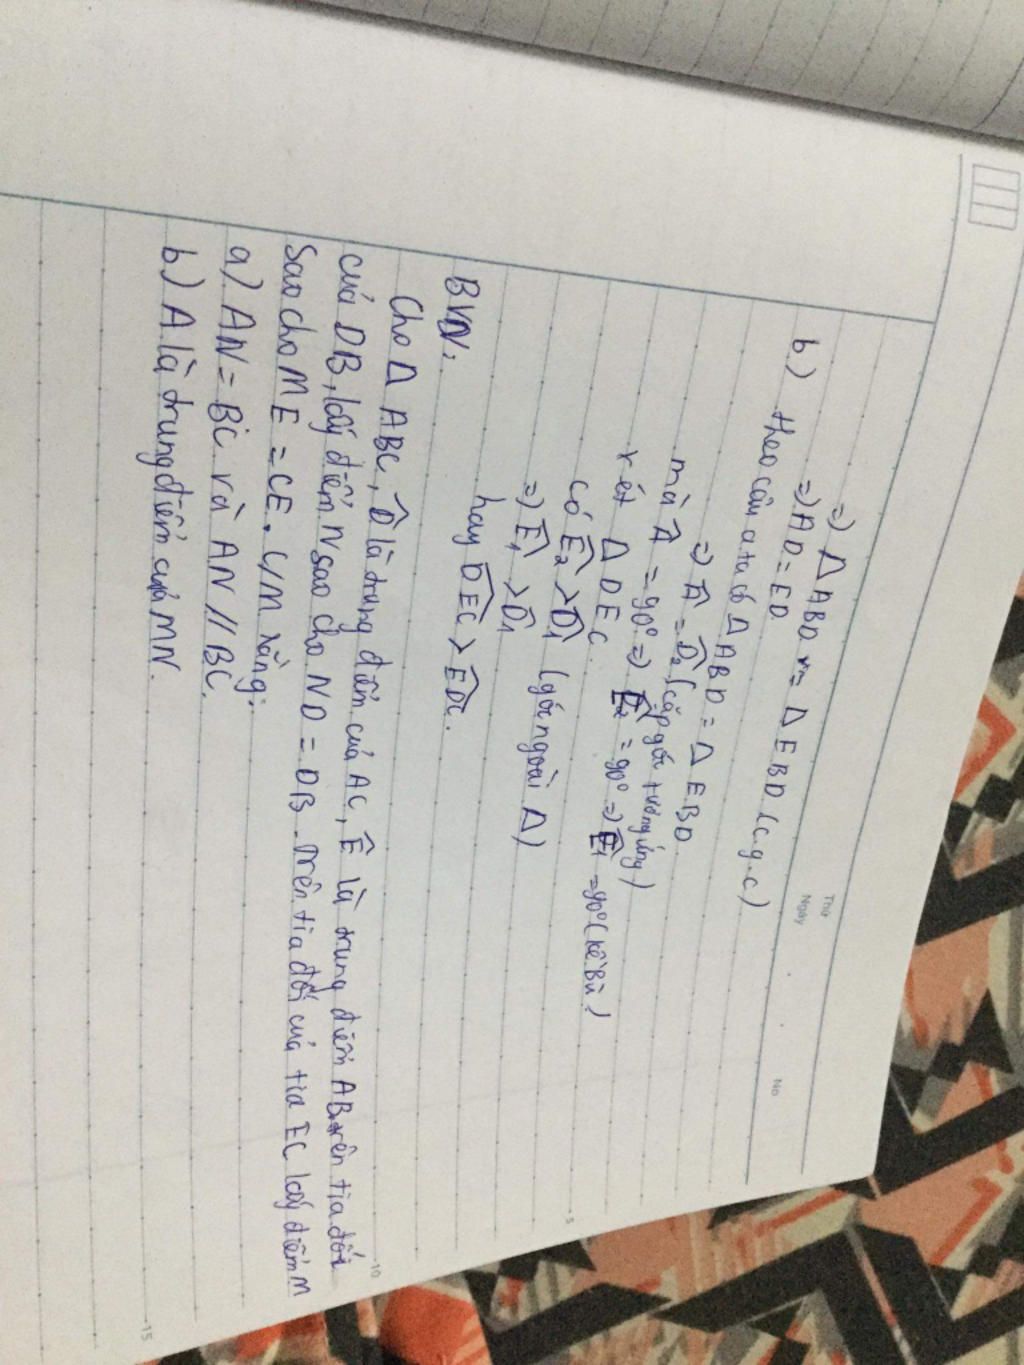 Thứ
Ngày
No
=) Δ ABD = Δ EBD (c.g.c)
=) AD = ED
b) theo câu a ta có Δ ABD = Δ EBD
=) Â = D̂₂ (cặp góc tương ứng)
mà Â = 90° =) Ê₂ = 90° =) Ê₁ = 90° (kề bù)
xét Δ DEC.
có Ê₂ > D̂₁ (góc ngoài Δ)
=) Ê₁ > D̂₁
hay DÊC > ED̂C.
BVN:
Cho Δ ABC, D̂ là trung điểm của AC, Ê là trung điểm AB, trên tia đối
của DB, lấy điểm N sao cho ND = DB. trên tia đối của tia EC lấy điểm M
sao cho ME = CE. C/m rằng:
a) AN = BC và AN // BC.
b) A là trung điểm của MN.
5
10
15